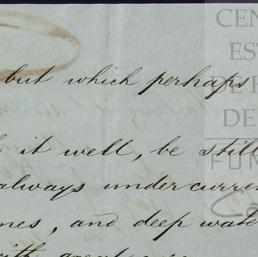 but which perhaps
it well, be still
always undercurre
nes, and deep wate
CEN
EST
DE H
DE
FUN